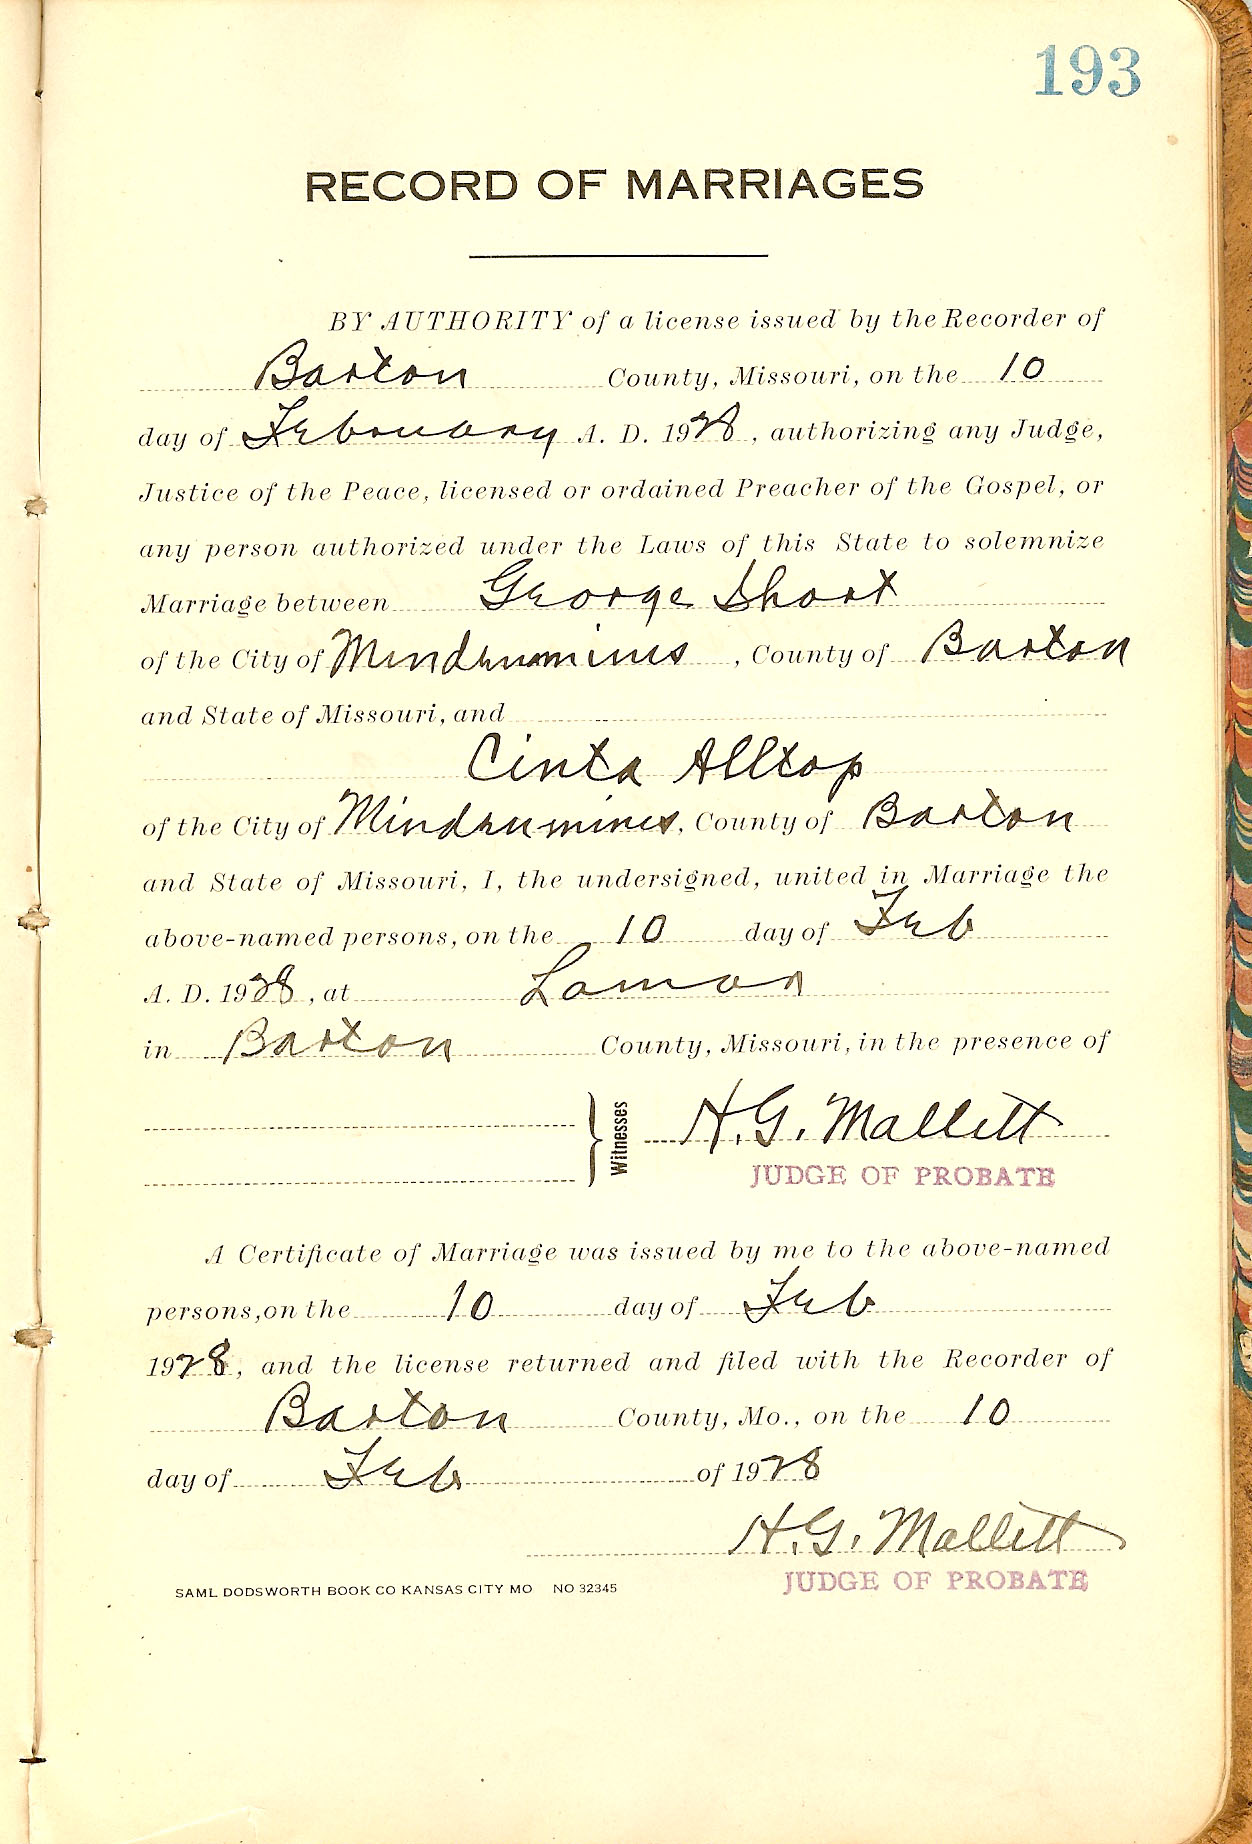 193
RECORD OF MARRIAGES
BY AUTHORITY of a license issued by the Recorder of
Barton County, Missouri, on the 10
day of February A. D. 1928, authorizing any Judge,
Justice of the Peace, licensed or ordained Preacher of the Gospel, or
any person authorized under the Laws of this State to solemnize
Marriage between George Short
of the City of Mindenmines, County of Barton
and State of Missouri, and
Cinta Alltop
of the City of Mindenmines, County of Barton
and State of Missouri, I, the undersigned, united in Marriage the
above-named persons, on the 10 day of Feb
A. D. 1928, at Lamar
in Barton County, Missouri, in the presence of
Witnesses H. G. Mallett
JUDGE OF PROBATE
A Certificate of Marriage was issued by me to the above-named
persons, on the 10 day of Feb
1928, and the license returned and filed with the Recorder of
Barton County, Mo., on the 10
day of Feb of 1928
H. G. Mallett
JUDGE OF PROBATE
SAML DODSWORTH BOOK CO KANSAS CITY MO NO 32345